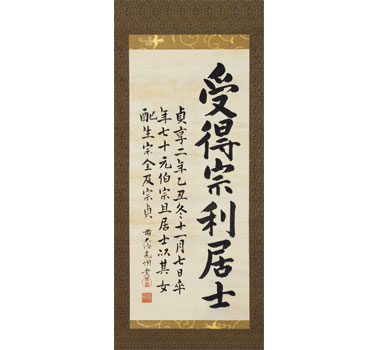 受得宗利居士
貞享二年乙丑冬十一月七日卒
年七十元伯宗旦居士以其女
配生宗全及宗貞